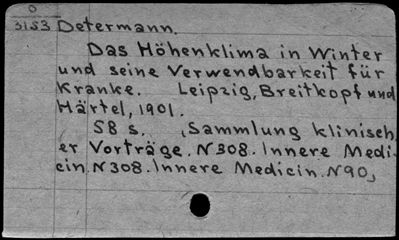 0
3153 Determann.
Das Höhenklima in Winter
und seine Verwendbarkeit für
Kranke. Leipzig, Breitkopf und
Härtel, 1901.
58 s. (Sammlung klinisch
er Vorträge. N308. Innere Medi-
cin. N308. Innere Medicin. N90)